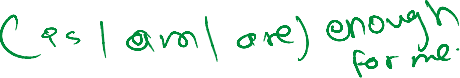 ( es | am | are) enough
for me.